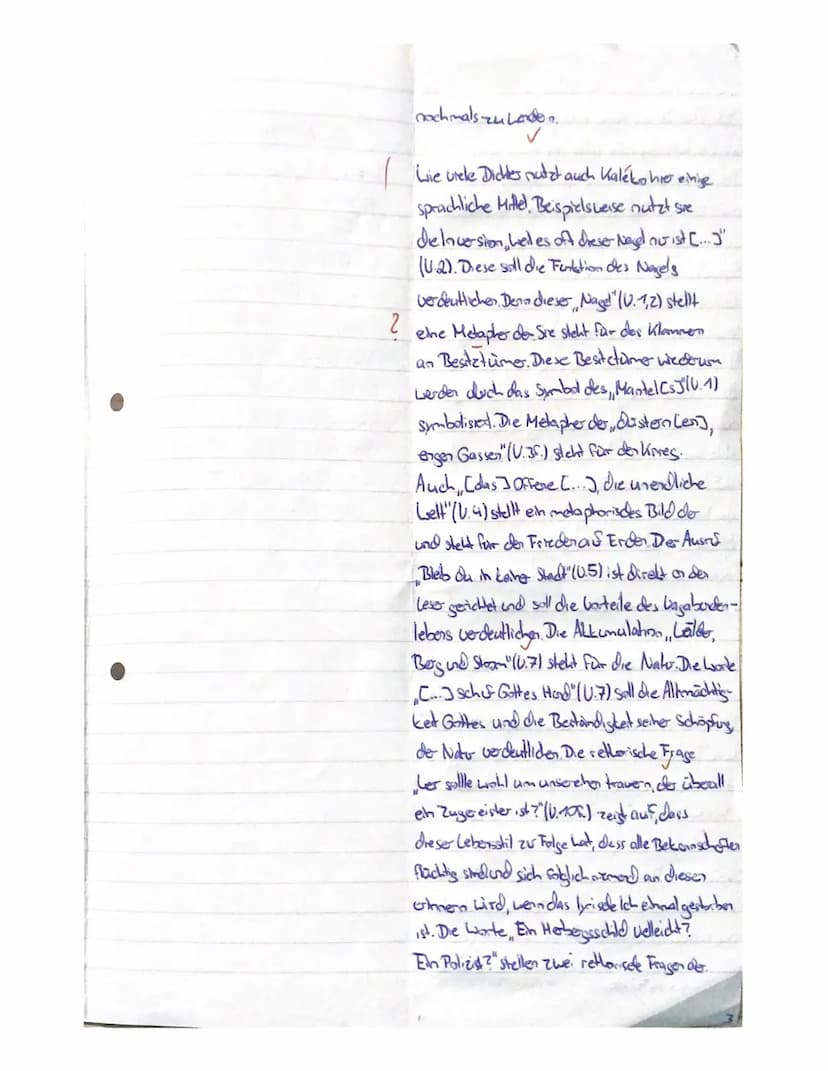 nochmals zu werden.
Wie viele Dichter nutzt auch Kaléko hier einige
sprachliche Mittel. Beispielsweise nutzt sie
die Inversion „weil es oft dieser Nagel nur ist [...]"
(V.2). Diese soll die Funktion des Nagels
verdeutlichen. Denn dieser „Nagel" (V.1,2) stellt
? eine Metapher dar. Sie steht für das Klammern
an Besitztümer. Diese Besitztümer wiederum
werden durch das Symbol des „Mantel[s]" (V.1)
symbolisiert. Die Metapher der „düstern[en],
engen Gassen" (V.3f.) steht für den Krieg.
Auch „[das] Offene [...], die unendliche
Welt" (V.4) stellt ein metaphorisches Bild dar
und steht für den Frieden auf Erden. Der Ausruf
„Bleib du in keiner Stadt" (V.5) ist direkt an den
Leser gerichtet und soll die Vorteile des Vagabunden-
lebens verdeutlichen. Die Akkumulation „Wälder,
Berg und Strom" (V.7) steht für die Natur. Die Worte
„[...] schuf Gottes Hand" (V.7) soll die Allmächtig-
keit Gottes und die Beständigkeit seiner Schöpfung,
der Natur verdeutlichen. Die rethorische Frage
„Wer sollte wohl um unsereinen trauern, der überall
ein Zugereister ist?" (V.10f.) zeigt auf, dass
dieser Lebensstil zu Folge hat, dass alle Bekannschaften
flüchtig sind und sich folglich niemand an diesen
erinnern wird, wenn das lyrische Ich einmal gestorben
ist. Die Worte „Ein Herbergsschild vielleicht?
Ein Polizist?" stellen zwei rethorische Fragen dar.
3